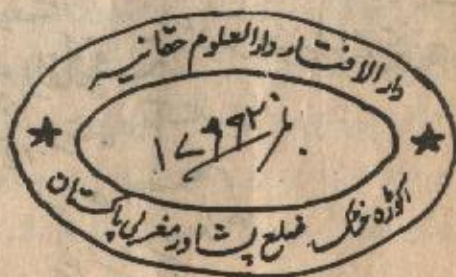 دارالافتاء دارالعلوم حقانیہ
نمبر ۱۷۹۹۲
اکوڑہ خٹک ضلع پشاور مغربی پاکستان